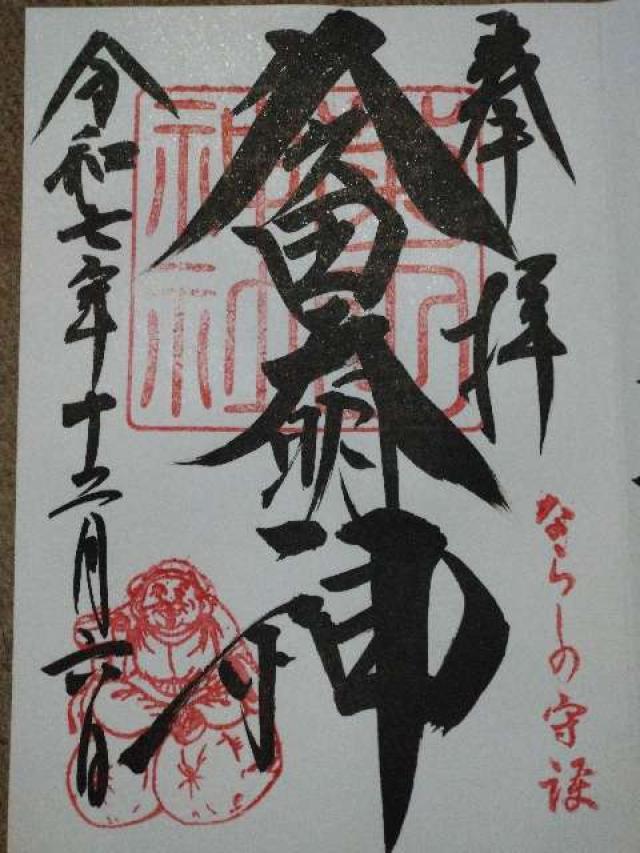 奉拝
ならしの守護
久々田大明神
神社
令和七年十二月六日